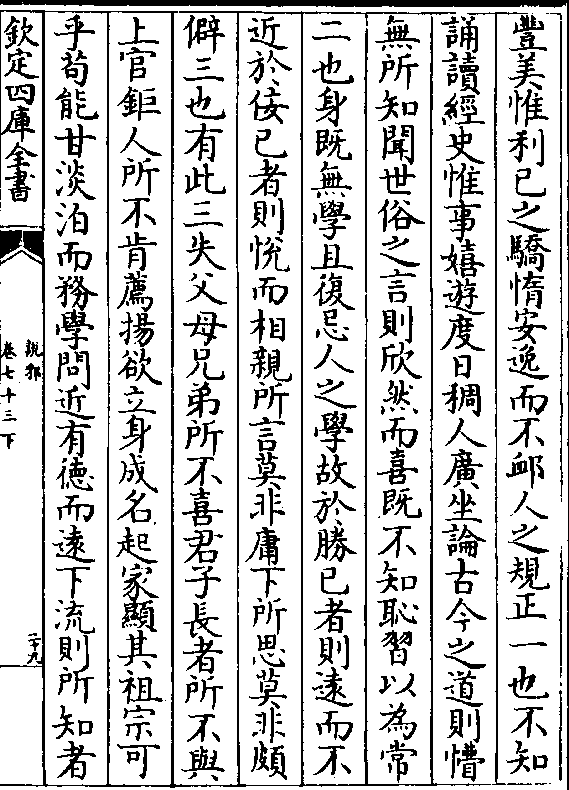 豐美惟利已之驕惰安逸而不䘏人之規正一也不知
誦讀經史惟事嬉遊度日稠人廣坐論古今之道則懵
無所知聞世俗之言則欣然而喜既不知恥習以為常
二也身既無學且復忌人之學故於勝已者則遠而不
近於佞已者則悅而相親所言莫非庸下所思莫非頗
僻三也有此三失父母兄弟所不喜君子長者所不與
上官鉅人所不肯薦揚欲立身成名起家顯其祖宗可
乎苟能甘淡泊而務學問近有德而逺下流則所知者
欽定四庫全書
說郛
卷七十三下
二十九